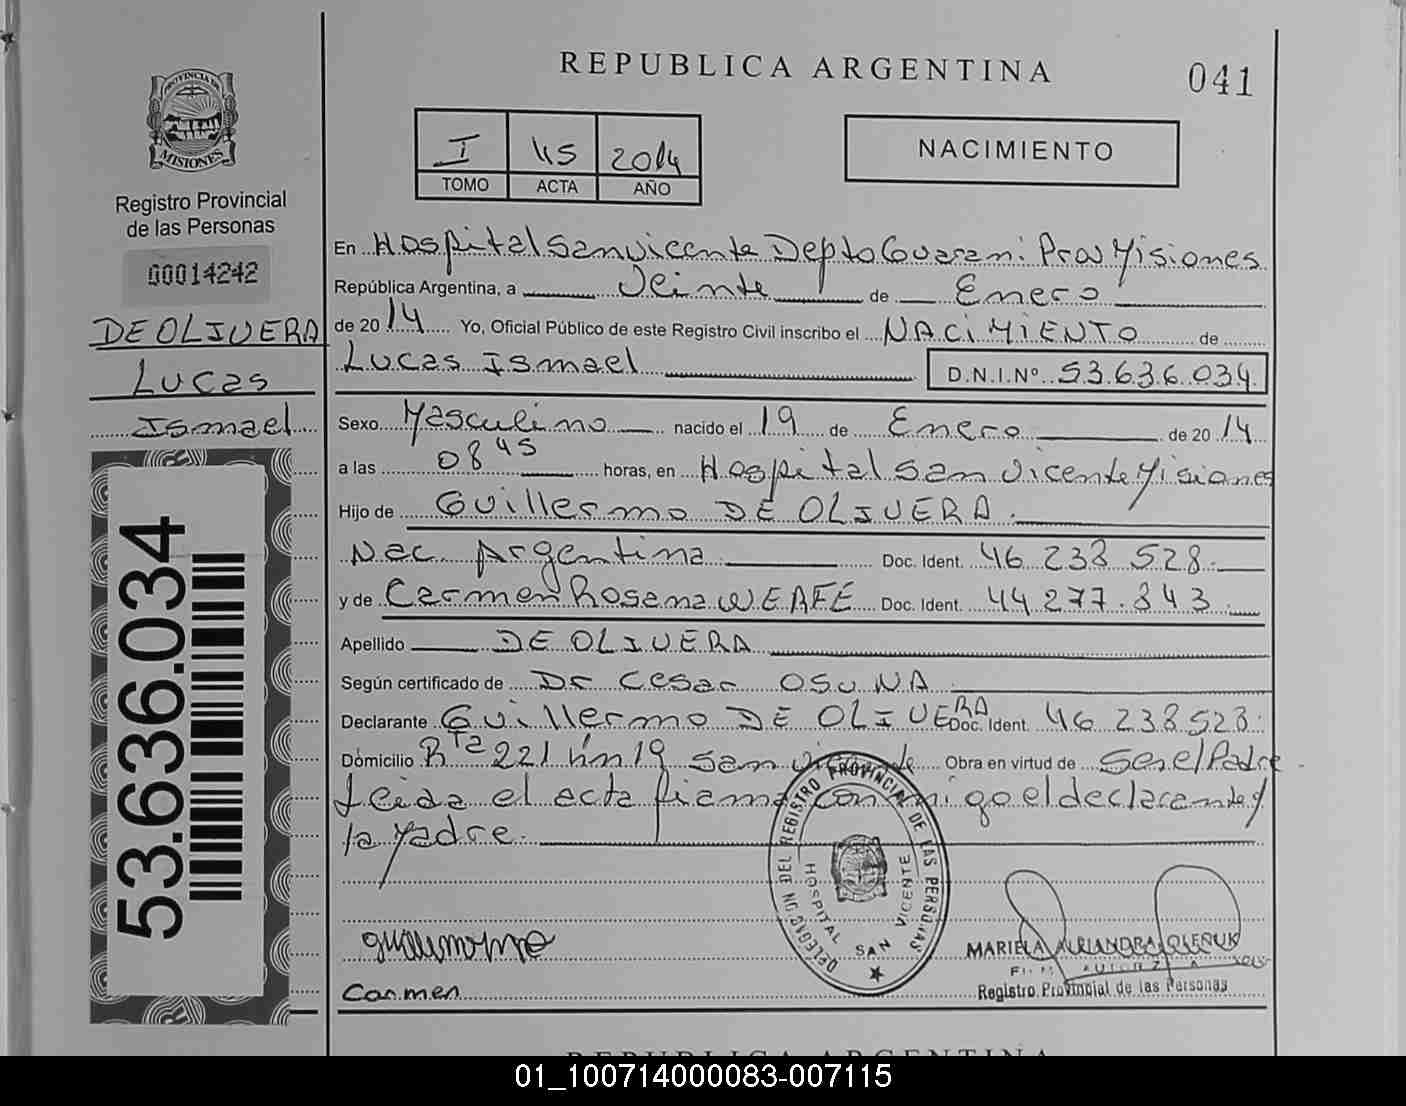 REPUBLICA ARGENTINA
041
PROVINCIA DE
MISIONES
Registro Provincial
de las Personas
00014242
DE OLIVERA
LUCAS
Ismael
53.636.034
I
115
2014
TOMO
ACTA
AÑO
NACIMIENTO
En Hospital San Vicente Depto Guarani Prov Misiones
República Argentina, a Veinte de Enero
de 2014 Yo, Oficial Público de este Registro Civil inscribo el NACIMIENTO de
Lucas Ismael D.N.I.Nº 53.636.034
Sexo Masculino nacido el 19 de Enero de 2014
a las 08 45 horas, en Hospital San Vicente Misiones
Hijo de Guillermo DE OLIVERA
Nac. Argentina Doc. Ident. 46 238 528
y de Carmen Rosana WEAFE Doc. Ident. 44 277.843
Apellido DE OLIVERA
Según certificado de Dr Cesar OSUNA
Declarante Guillermo DE OLIVERA Doc. Ident. 46 238 528
Domicilio Rta 221 km 19 San Vicente Obra en virtud de Ser el Padre
Leida el acta firma con migo el declarante y
la Madre.
DELEGACION DEL REGISTRO PROVINCIAL DE LAS PERSONAS
HOSPITAL SAN VICENTE
Carmen
MARIELA ALEJANDRA OLENUK
Registro Provincial de las Personas
REPUBLICA ARGENTINA
01_100714000083-007115